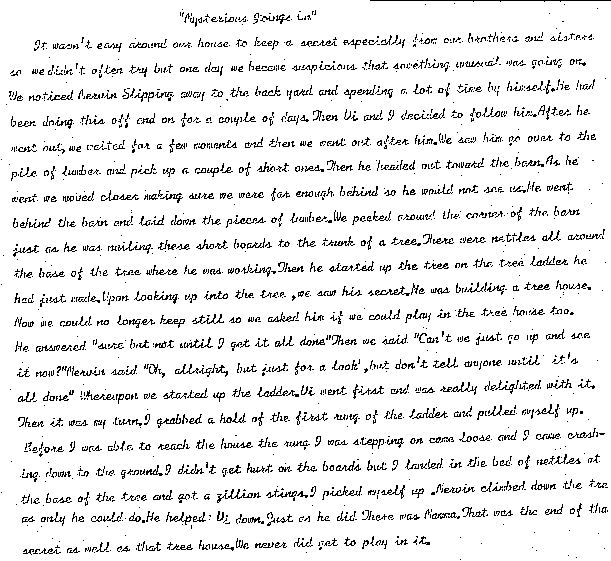 "Mysterious Goings in"
It wasn't easy around our house to keep a secret especially from our brothers and sisters
so we didn't often try but one day we became suspicious that something unusual was going on.
We noticed Mervin Slipping away to the back yard and spending a lot of time by himself.He had
been doing this off and on for a couple of days.Then Vi and I decided to follow him.After he
went out, we waited for a few moments and then we went out after him.We saw him go over to the
pile of lumber and pick up a couple of short ones.Then he headed out toward the barn.As he
went we moved closer making sure we were far enough behind so he would not see us.He went
behind the barn and laid down the pieces of lumber.We peeked around the corner of the barn
just as he was nailing these short boards to the trunk of a tree.There were nettles all around
the base of the tree where he was working.Then he started up the tree on the tree ladder he
had just made.Upon looking up into the tree ,we saw his secret.He was building a tree house.
Now we could no longer keep still so we asked him if we could play in the tree house too.
He answered "sure but not until I get it all done"Then we said "Can't we just go up and see
it now?"Mervin said "Oh, allright, but just for a look',but don't tell anyone until it's
all done" Whereupon we started up the ladder.Vi went first and was really delighted with it.
Then it was my turn.I grabbed a hold of the first rung of the ladder and pulled myself up.
Before I was able to reach the house the rung I was stepping on came loose and I came crash-
ing down to the ground.I didn't get hurt on the boards but I landed in the bed of nettles at
the base of the tree and got a zillion stings.I picked myself up .Mervin climbed down the tre
as only he could do.He helped Vi down.Just as he did There was Mamma.That was the end of tha
secret as well as that tree house.We never did get to play in it.